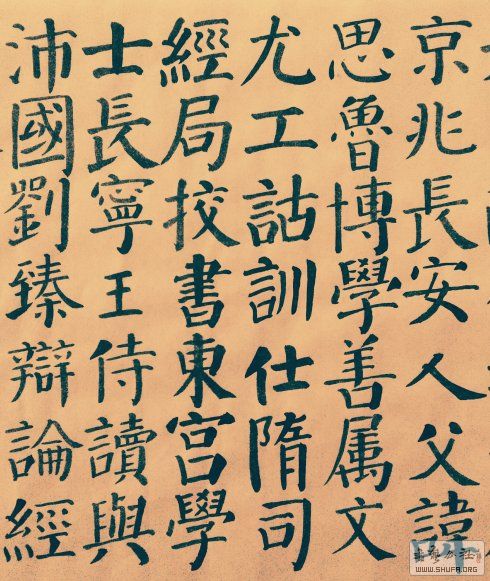 京兆長安人父諱
思魯博學善属文
尤工詁訓仕隋司
經局挍書東宮學
士長寧王侍讀與
沛國劉臻辯論經
WWW.SHUFA.ORG